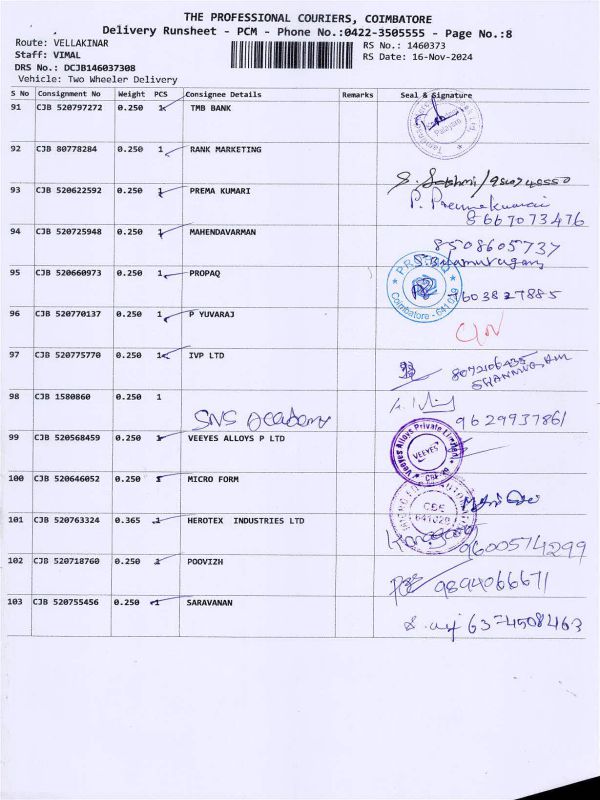 THE PROFESSIONAL COURIERS, COIMBATORE
Delivery Runsheet - PCM - Phone No.:0422-3505555 - Page No.:8
Route: VELLAKINAR
RS No.: 1460373
Staff: VIMAL
RS Date: 16-Nov-2024
DRS No.: DCJB146037308
Vehicle: Two Wheeler Delivery
S No Consignment No Weight PCS Consignee Details Remarks Seal & Signature
91 CJB 520797272 0.250 1 TMB BANK
92 CJB 80778284 0.250 1 RANK MARKETING
93 CJB 520622592 0.250 1 PREMA KUMARI
P. Premakumari
8667073476
94 CJB 520725948 0.250 1 MAHENDAVARMAN
8508605737
S. Balamurugan
95 CJB 520660973 0.250 1 PROPAQ
PROPAQ
Coimbatore - 641 029
9603827885
96 CJB 520770137 0.250 1 P YUVARAJ
97 CJB 520775770 0.250 1 IVP LTD
8072106435
98 CJB 1580860 0.250 1
SNS Academy
9629937861
99 CJB 520568459 0.250 1 VEEYES ALLOYS P LTD
Veeyes Alloys Private Limited
VEEYES
CBE
100 CJB 520646052 0.250 1 MICRO FORM
CBE
641029
101 CJB 520763324 0.365 1 HEROTEX INDUSTRIES LTD
9600574299
102 CJB 520718760 0.250 1 POOVIZH
9894066671
103 CJB 520755456 0.250 1 SARAVANAN